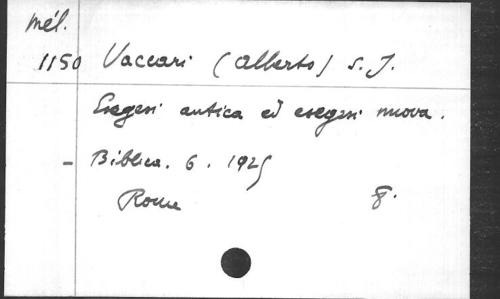 mél.
1150 Vaccari (Alberto) s. J.
Esegesi antica ed esegesi nuova.
- Biblica. 6. 1925
Rome 8.